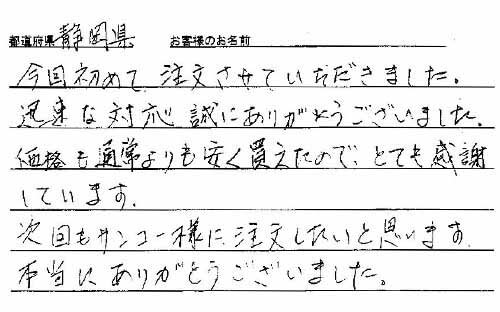 都道府県 静岡県 お客様のお名前
今回初めて注文させていただきました。
迅速な対応誠にありがとうございました。
価格も通常よりも安く買えたので、とても感謝
しています。
次回もサンコー様に注文したいと思います。
本当にありがとうございました。